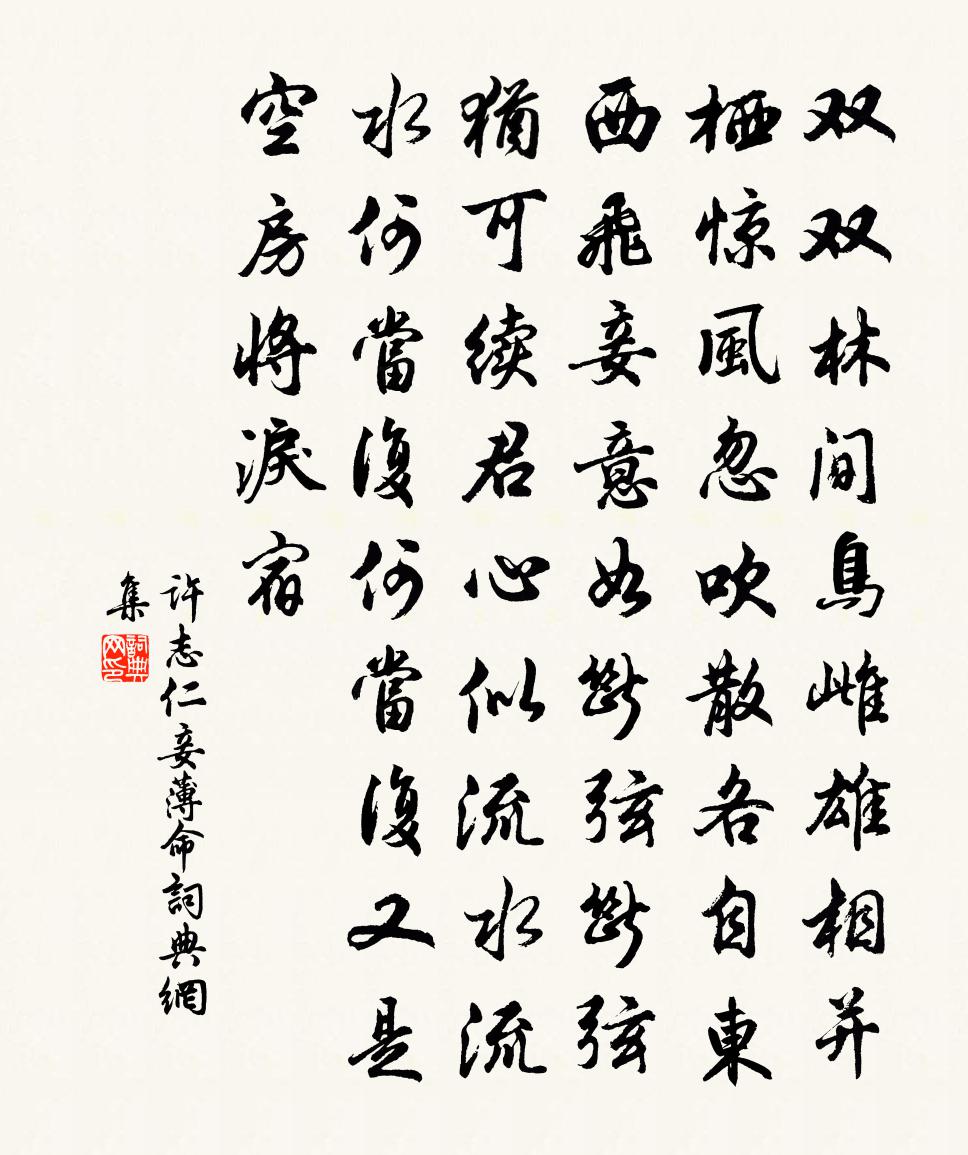 双双林间鳥雌雄相并
栖惊風忽吹散各自東
西飛妾意如斷弦斷弦
猶可续君心似流水流
水何當復何當復又是
空房將淚宿
許志仁妾薄命詞典網
集
詞典
网印